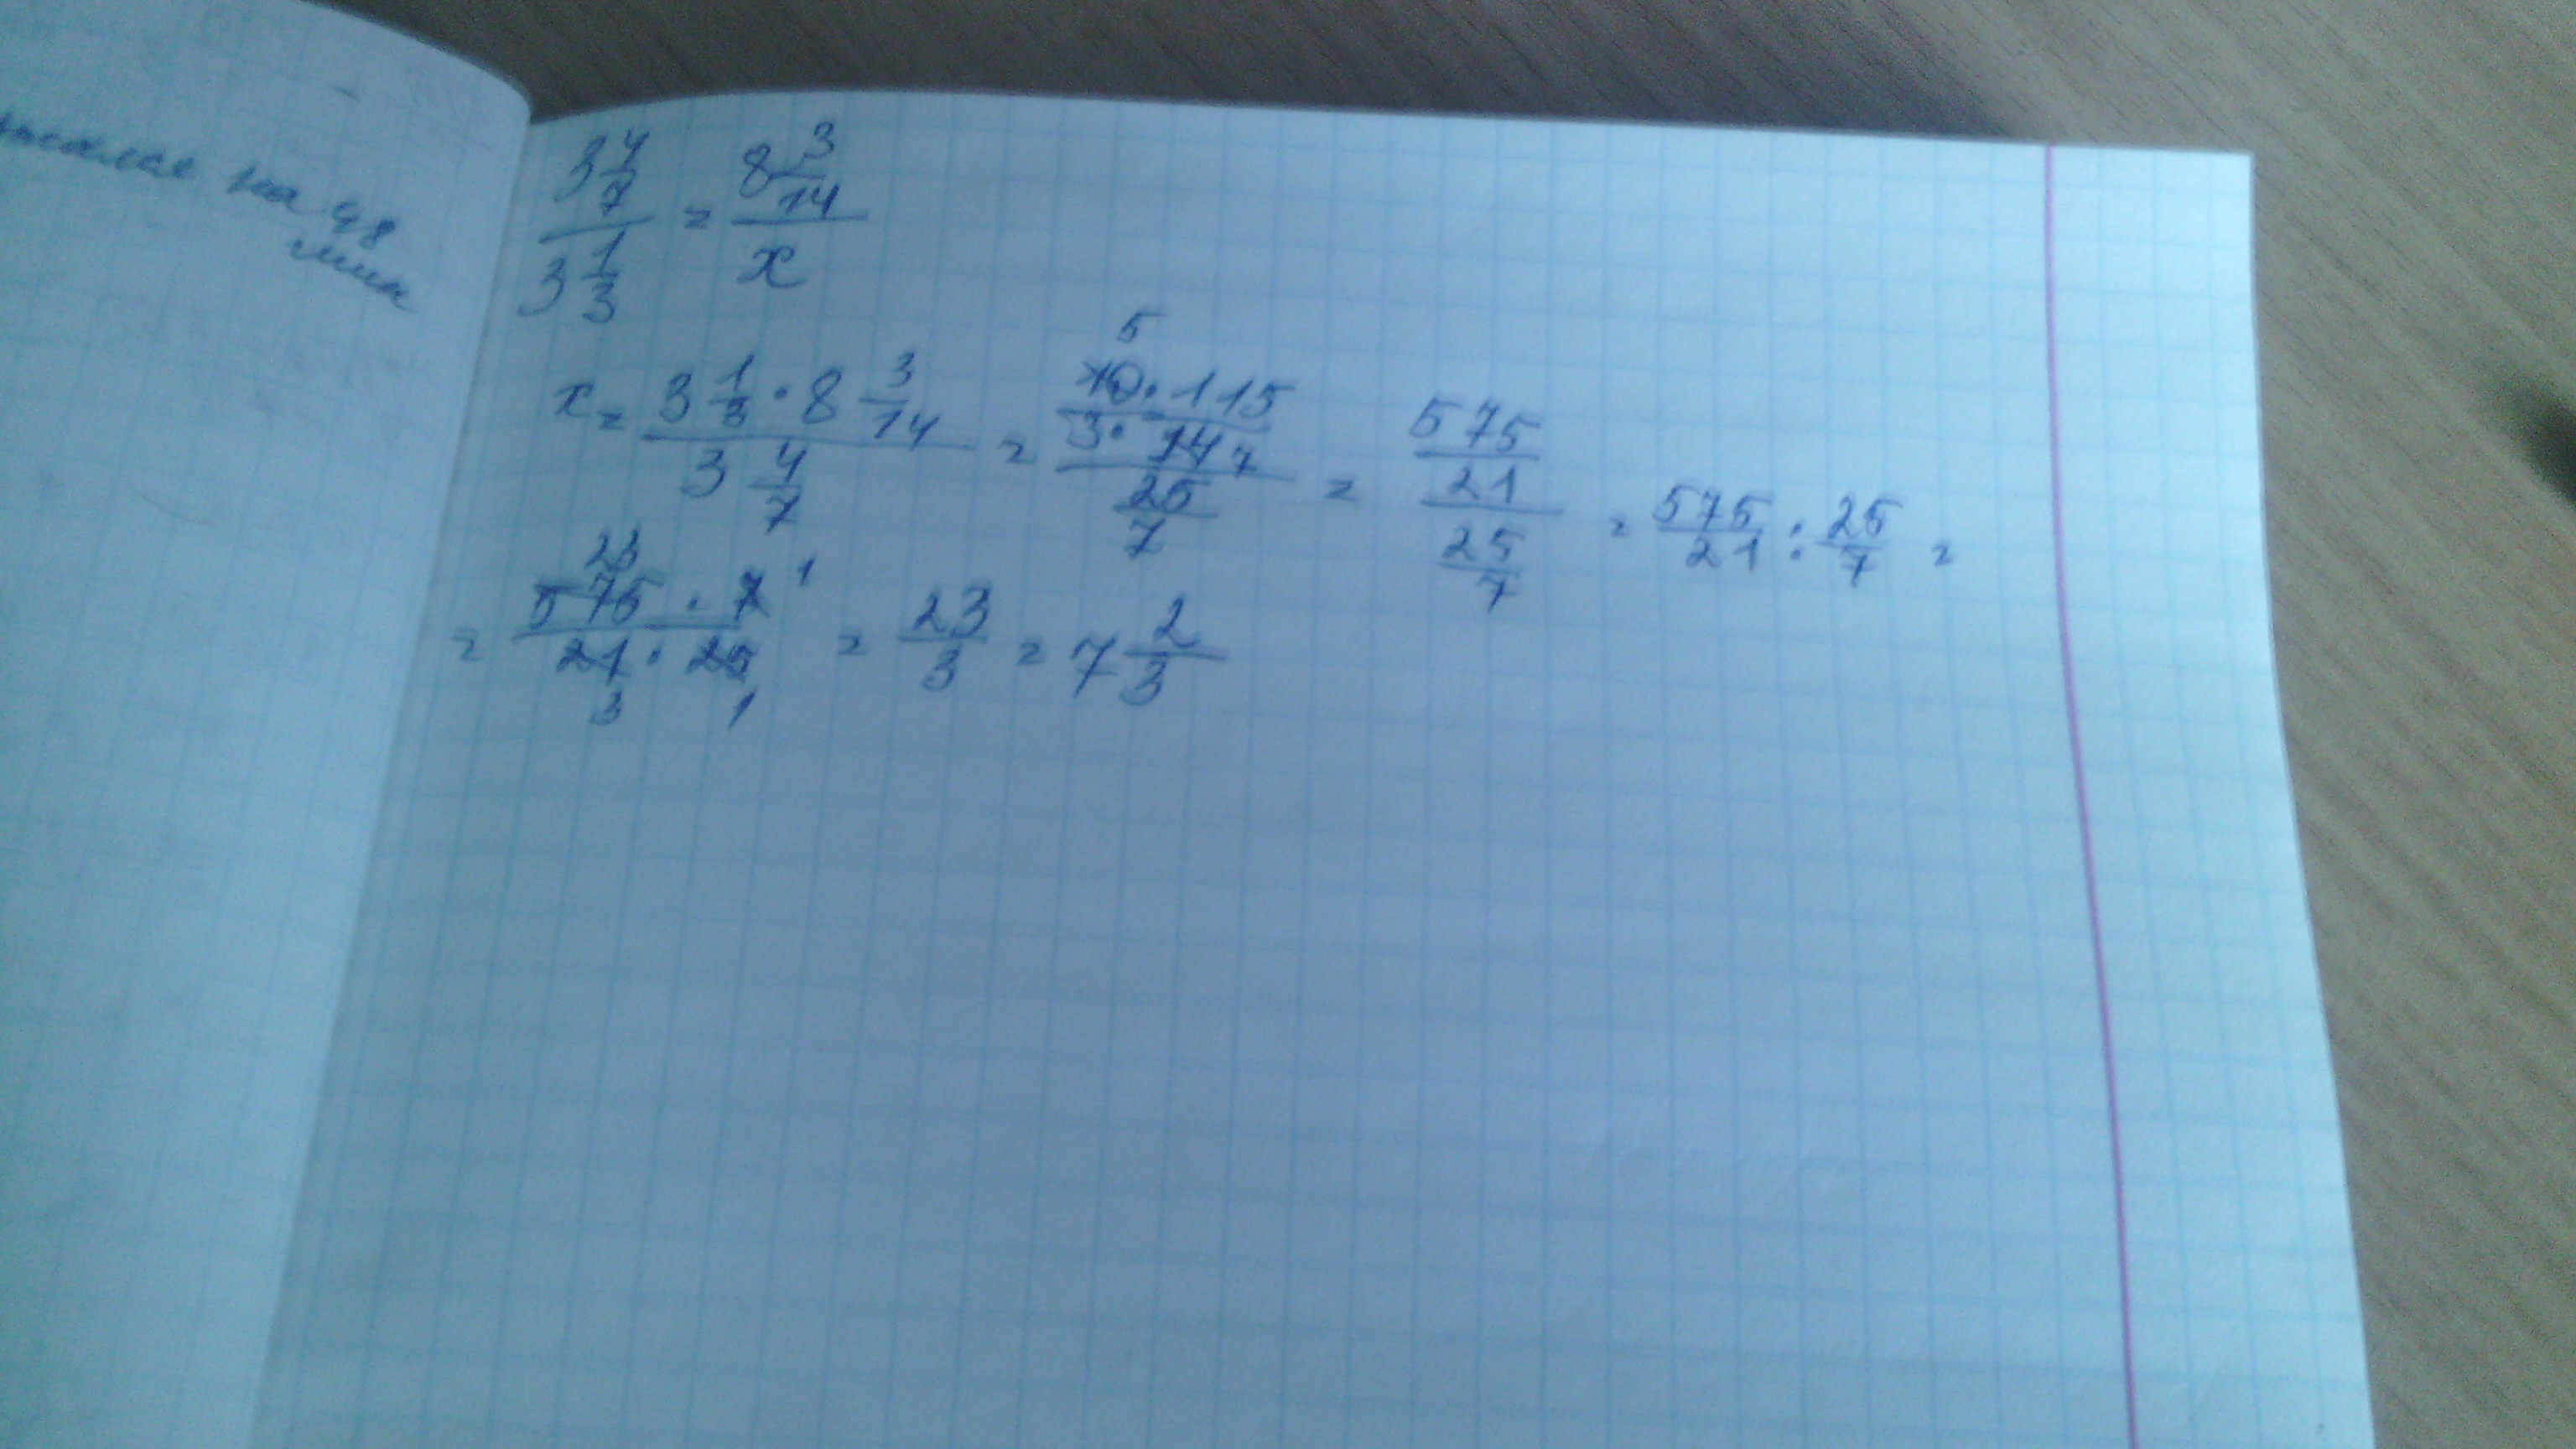 на 48
мин
3 4/7 / 3 1/3 = 8 3/14 / x
x = 3 1/3 · 8 3/14 / 3 4/7 = 5 10 · 115 / 3 · 14 7 / 25/7 = 575/21 / 25/7 = 575/21 : 25/7 =
= 23 575 · 7 1 / 21 · 25 3 1 = 23/3 = 7 2/3